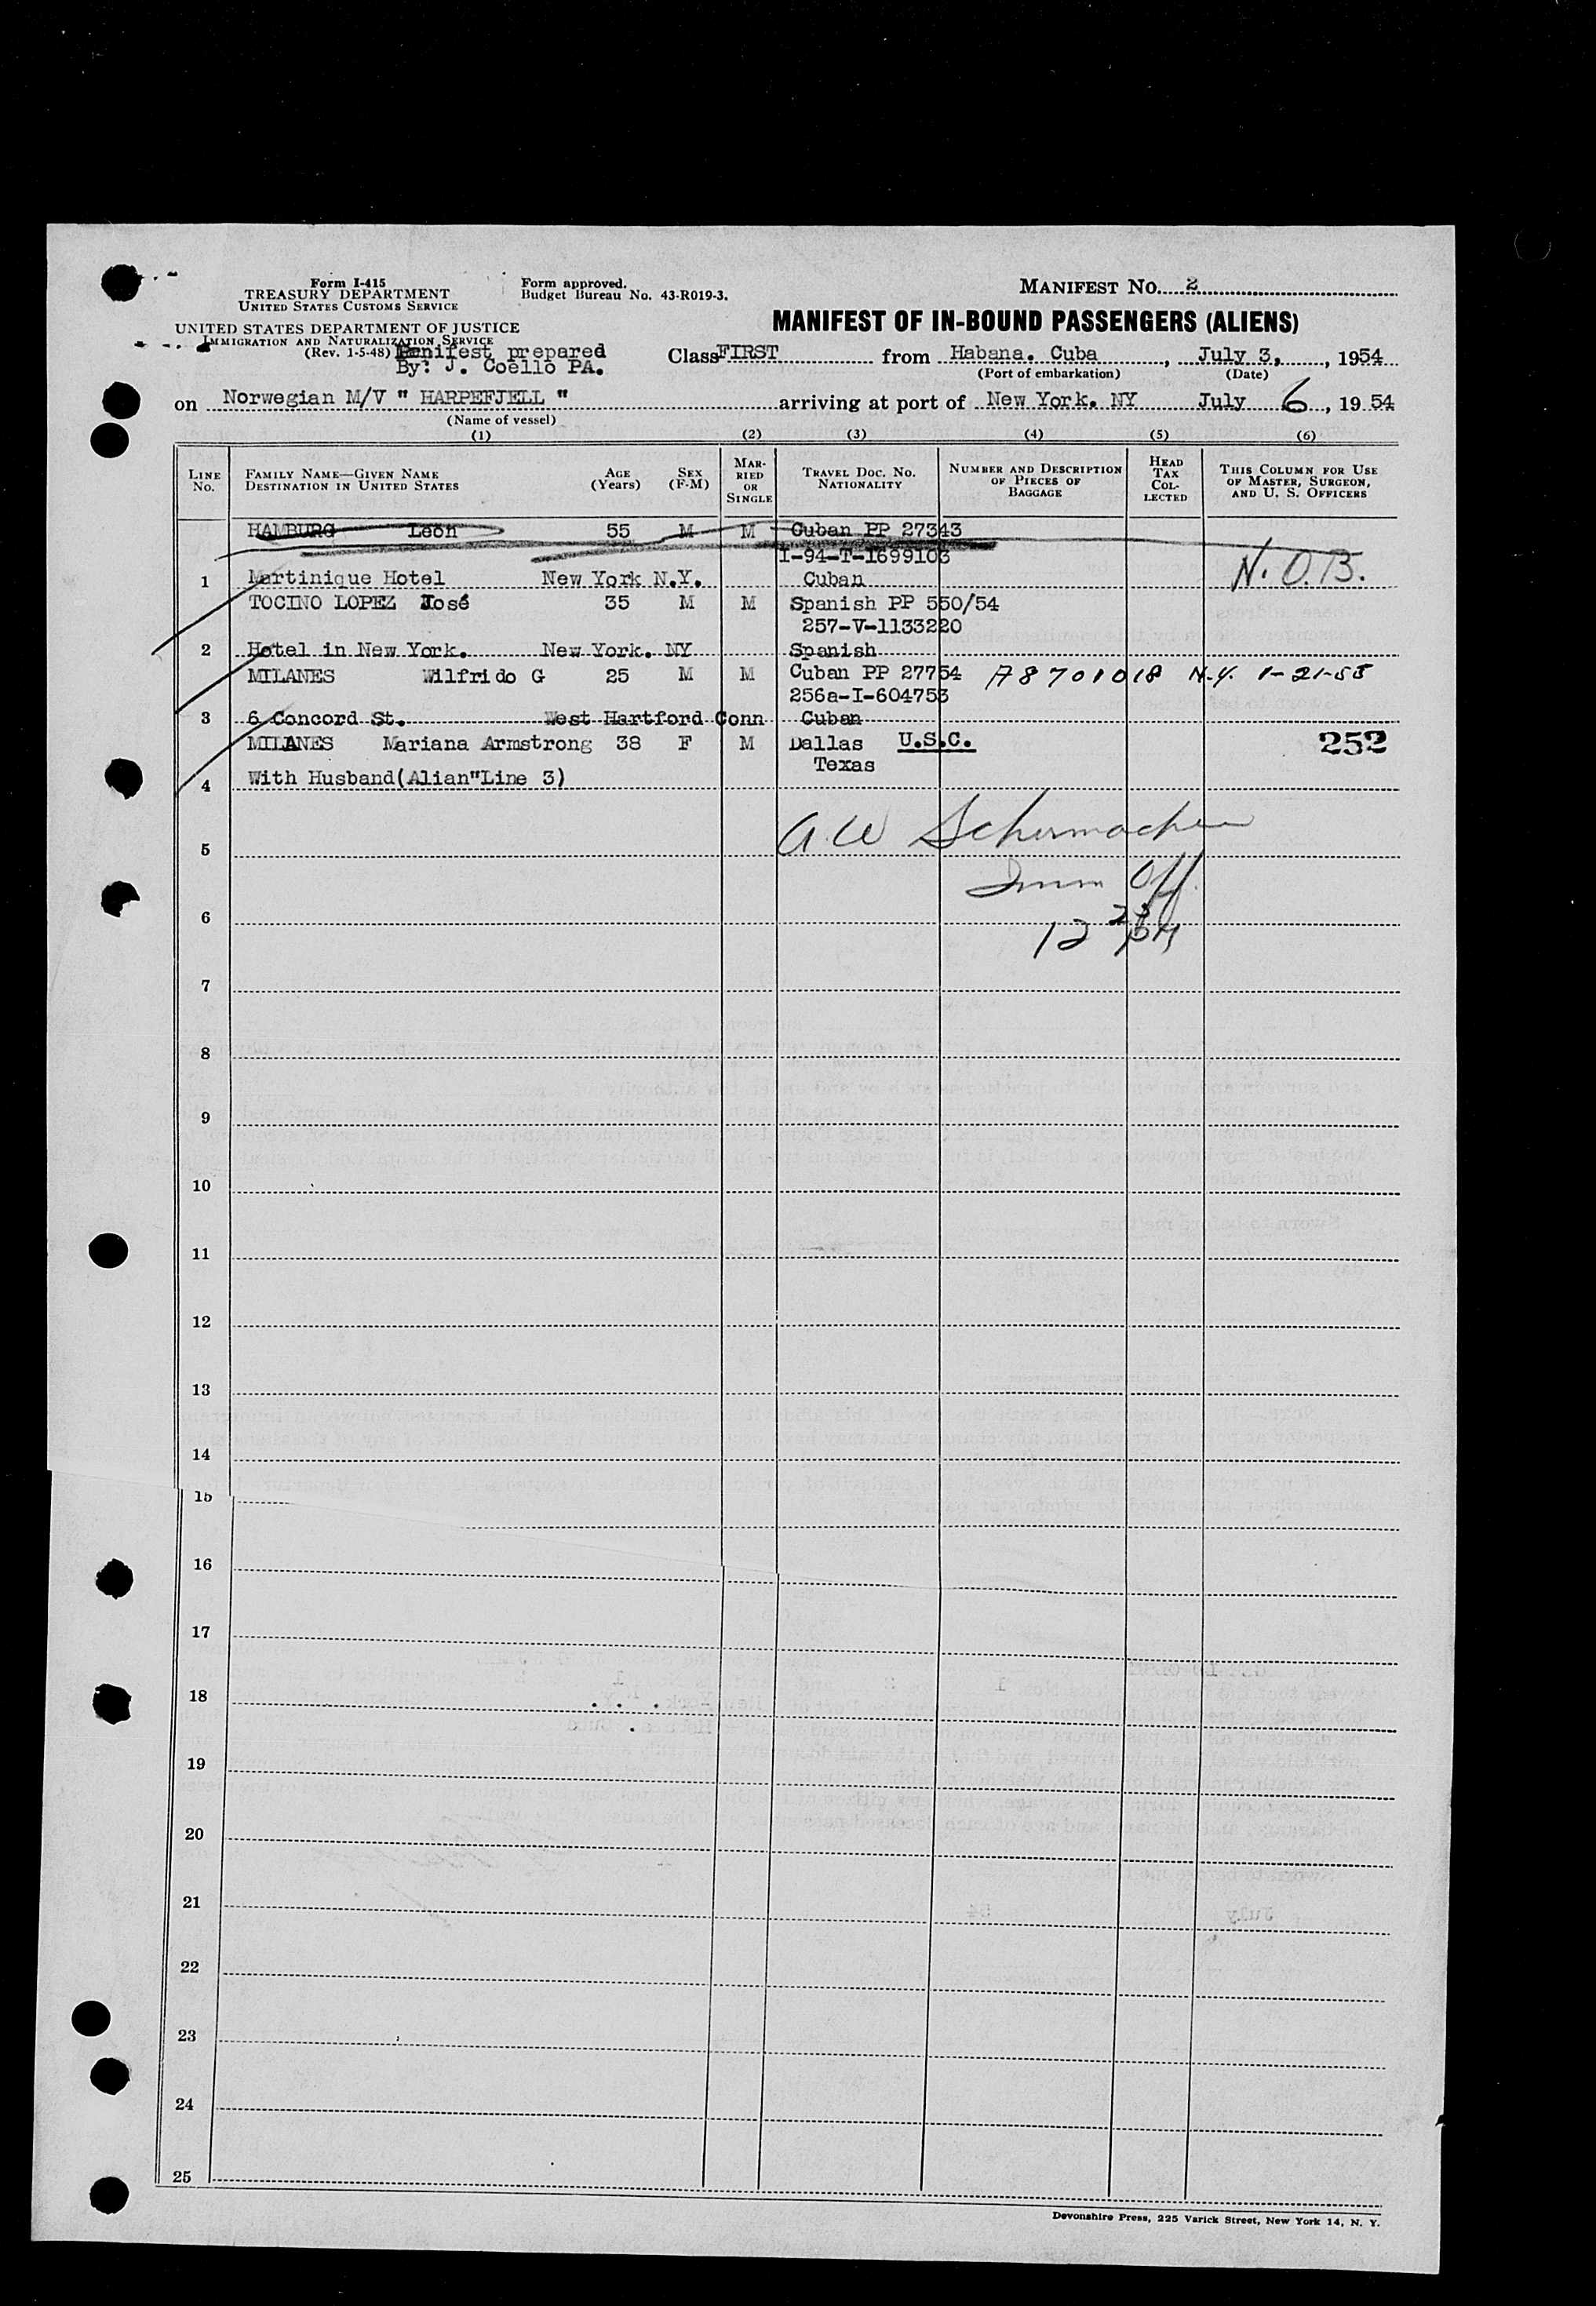 Form I-415
TREASURY DEPARTMENT
UNITED STATES CUSTOMS SERVICE
UNITED STATES DEPARTMENT OF JUSTICE
IMMIGRATION AND NATURALIZATION SERVICE
(Rev. 1-5-48)
Form approved.
Budget Bureau No. 43-R019-3.
Manifest prepared
By: J. Coello PA.
MANIFEST NO. 2
MANIFEST OF IN-BOUND PASSENGERS (ALIENS)
Class FIRST from Habana. Cuba, July 3, 1954
(Port of embarkation) (Date)
on Norwegian M/V " HARPEFJELL " arriving at port of New York. NY July 6, 1954
(Name of vessel)
(1) (2) (3) (4) (5) (6)
LINE NO. FAMILY NAME—GIVEN NAME DESTINATION IN UNITED STATES AGE (Years) SEX (F-M) MARRIED OR SINGLE TRAVEL DOC. NO. NATIONALITY NUMBER AND DESCRIPTION OF PIECES OF BAGGAGE HEAD TAX COLLECTED THIS COLUMN FOR USE OF MASTER, SURGEON, AND U. S. OFFICERS
HAMBURG León 55 M M Cuban PP 27343
I-94-T-1699103
1 Martinique Hotel New York N.Y. Cuban N.O.B.
TOCINO LOPEZ José 35 M M Spanish PP 550/54
257-V-1133220
2 Hotel in New York. New York. NY Spanish
MILANES Wilfrido G 25 M M Cuban PP 27754 A8701018 N.Y. 1-21-55
256a-I-604753
3 6 Concord St. West Hartford Conn Cuban
MILANES Mariana Armstrong 38 F M Dallas U.S.C. 252
Texas
4 With Husband(Alian"Line 3)
A W Schumacher
5
Imm Off.
6
12 25 PM
7
8
9
10
11
12
13
14
15
16
17
18
19
20
21
22
23
24
25
Devonshire Press, 225 Varick Street, New York 14, N. Y.